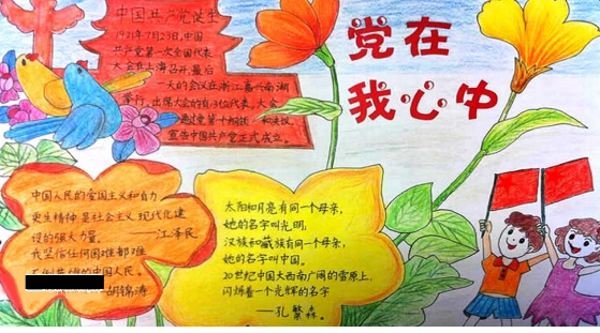 党在
我心中
中国共产党诞生
1921年7月23日,中国
共产党第一次全国代表
大会在上海召开,最后
一天的会议在浙江嘉兴南湖
举行,出席大会的有13位代表,大会
通过党第 和决议,
宣告中国共产党正式成立。
中国人民的爱国主义和自力
更生精神是社会主义现代化建
设的强大力量。——江泽民
我坚信任何困难都难
的中国人民。
胡锦涛
太阳和月亮有同一个母亲,
她的名字叫光明,
汉族和藏族有同一个母亲,
她的名字叫中国。
20世纪中国大西南广阔的雪原上,
闪烁着一个光辉的名字
——孔繁森。